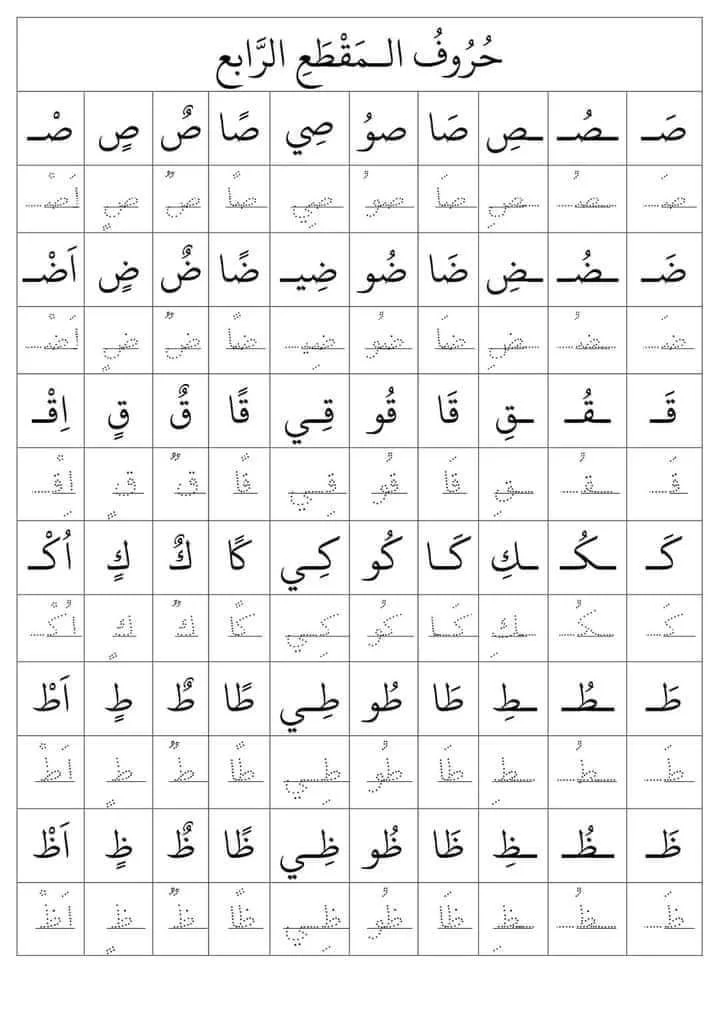 حُرُوفُ الـمَقْطَعِ الرَّابع
صَـ ـصُـ ـصِ صَا صوُ صِي صًا صٌ صٍ صْـ
صَـ ـصُـ صِ صَا صوُ صِي صًا صٌ صٍ اَصْـ
ضَـ ـضُـ ـضِ ضَا ضُو ضِيـ ضًا ضٌ ضٍ اَضْـ
ضَـ ـضُـ ضِ ضَا ضُو ضِيـ ضًا ضٌ ضٍ اَضْـ
قَـ ـقُـ ـقِ قَا قُو قِـي قًا قٌ قٍ اِقْـ
قَـ ـقُـ ـقِ قَا قُو قِـي قًا قٌ قٍ اِقْـ
كَـ ـكُـ ـكِ كَـا كُو كِـي كًا كٌ كٍ اُكْـ
كَـ ـكُـ ـكِ كَـا كُو كِـي كًا كٌ كٍ اُكْـ
طَـ ـطُـ ـطِ طَا طُو طِـي طًا طٌ طٍ اَطْ
طَـ ـطُـ ـطِ طَا طُو طِـي طًا طٌ طٍ اَطْ
ظَـ ـظُـ ـظِ ظَا ظُو ظِـي ظًا ظٌ ظٍ اَظْ
ظَـ ـظُـ ـظِ ظَا ظُو ظِـي ظًا ظٌ ظٍ اَظْ